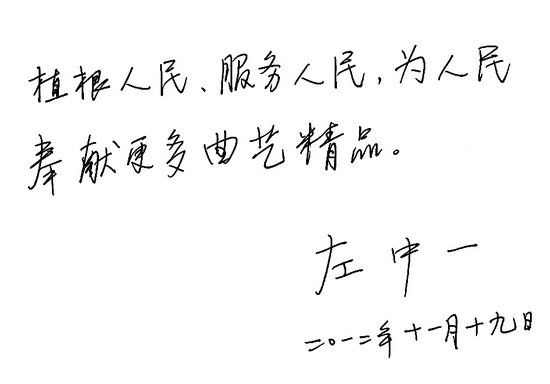 植根人民、服务人民，为人民
奉献更多曲艺精品。
左中一
二〇一二年十一月十九日